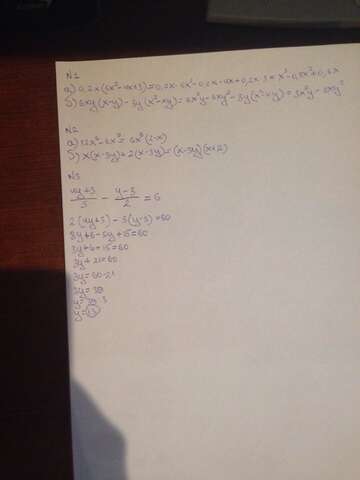 N1
а) 0,2x(5x²-4x+3)=0,2x·5x²-0,2x·4x+0,2x·3=x³-0,8x²+0,6x
б) 6xy(x-y)-3y(x²-xy)=6x²y-6xy²-3y(x²-xy)=3x²y-3xy²
N2
а) 12x²-6x³=6x²(2-x)
б) x(x-3y)+2(x-3y)=(x-3y)(x+2)
N3
4y+3/5 - y-3/2 = 6
2(4y+3)-5(y-3)=60
8y+6-5y+15=60
3y+6+15=60
3y+21=60
3y=60-21
3y=39
y=39:3
y=13